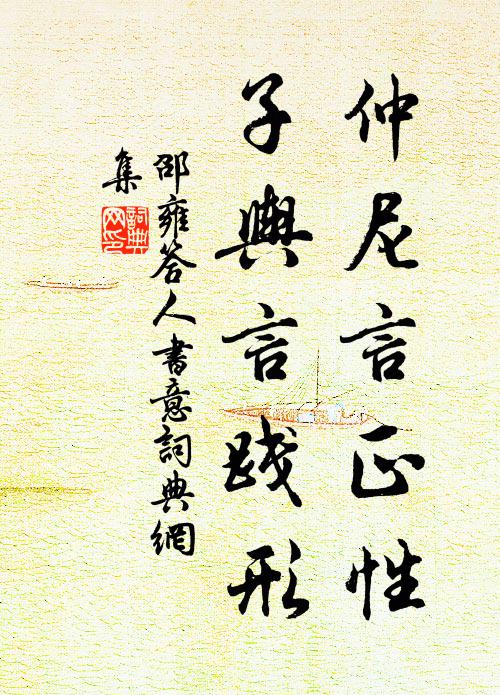 仲尼言正性
子輿言踐形
邵雍答人書意詞典網
集
詞典
网印